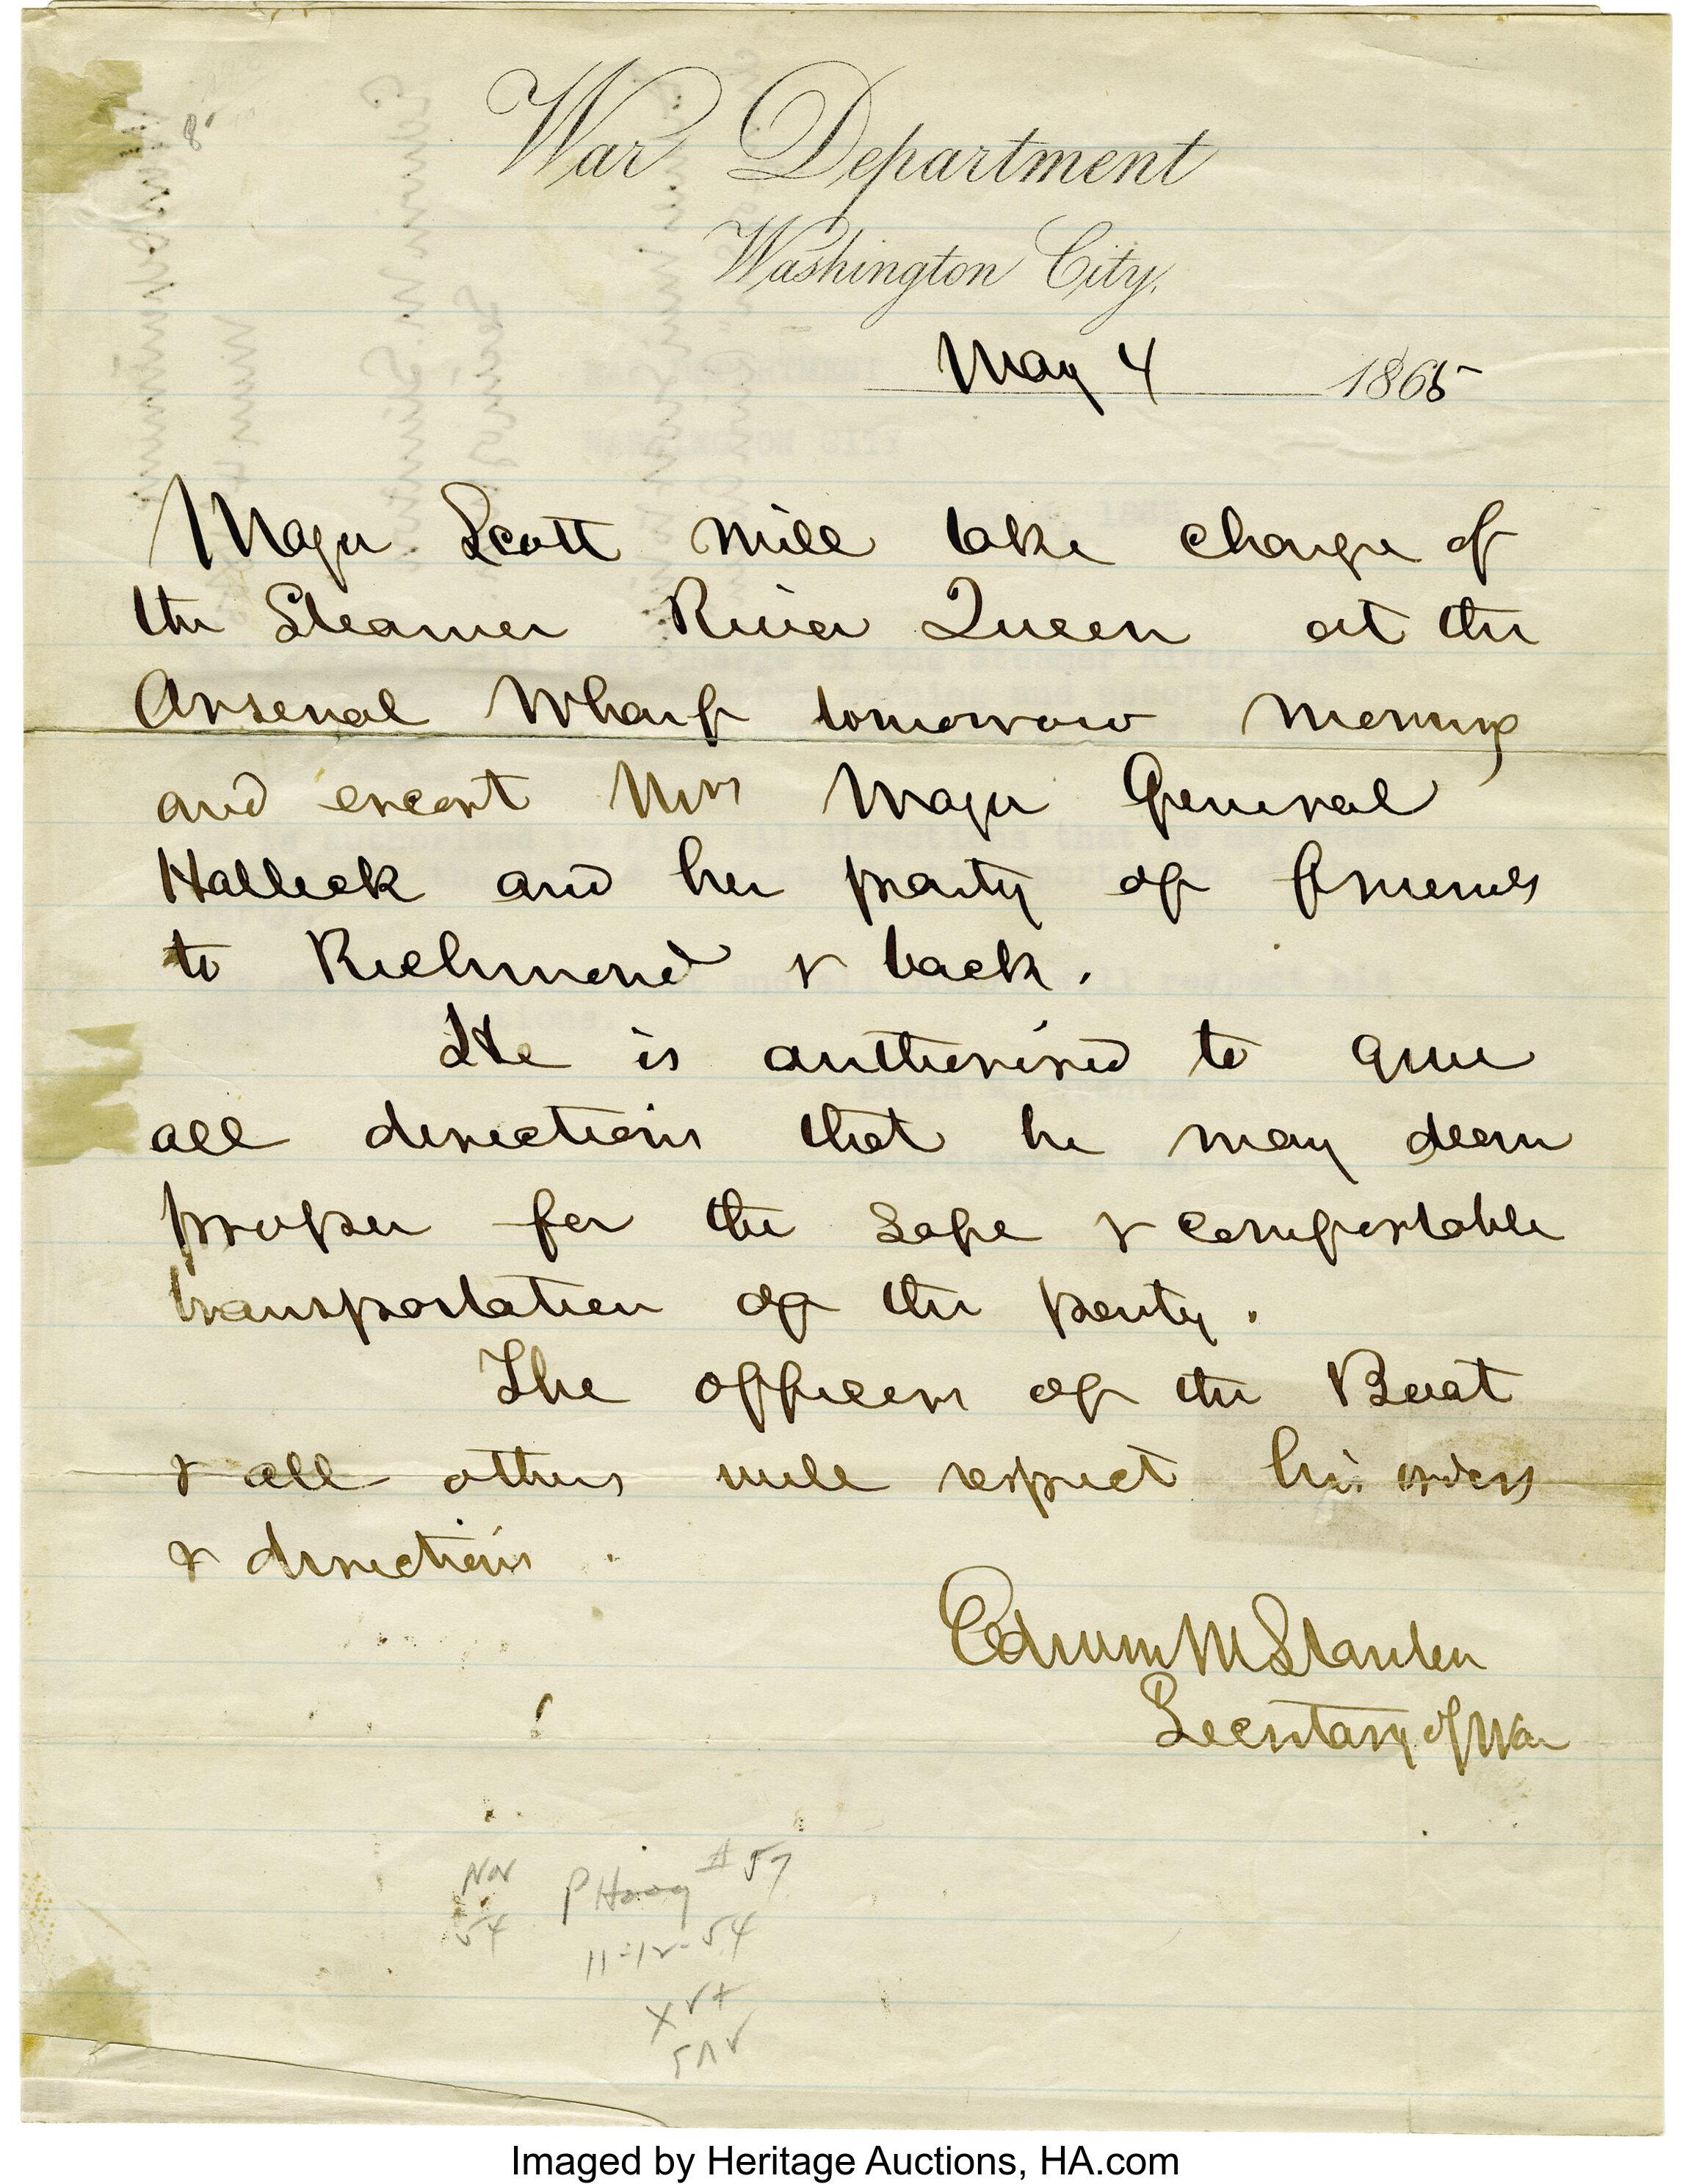 War Department
Washington City,
May 4 1865
Major Scott will take charge of
the Steamer River Queen at the
Arsenal Wharf tomorrow morning
and escort Mrs Major General
Halleck and her party of friends
to Richmond & back.
He is authorised to give
all directions that he may deem
proper for the safe & comfortable
transportation of the party.
The officers of the Boat
& all others will respect his orders
& directions.
Edwin M Stanton
Secretary of War
Nov
54
#57
11-12-54
Imaged by Heritage Auctions, HA.com